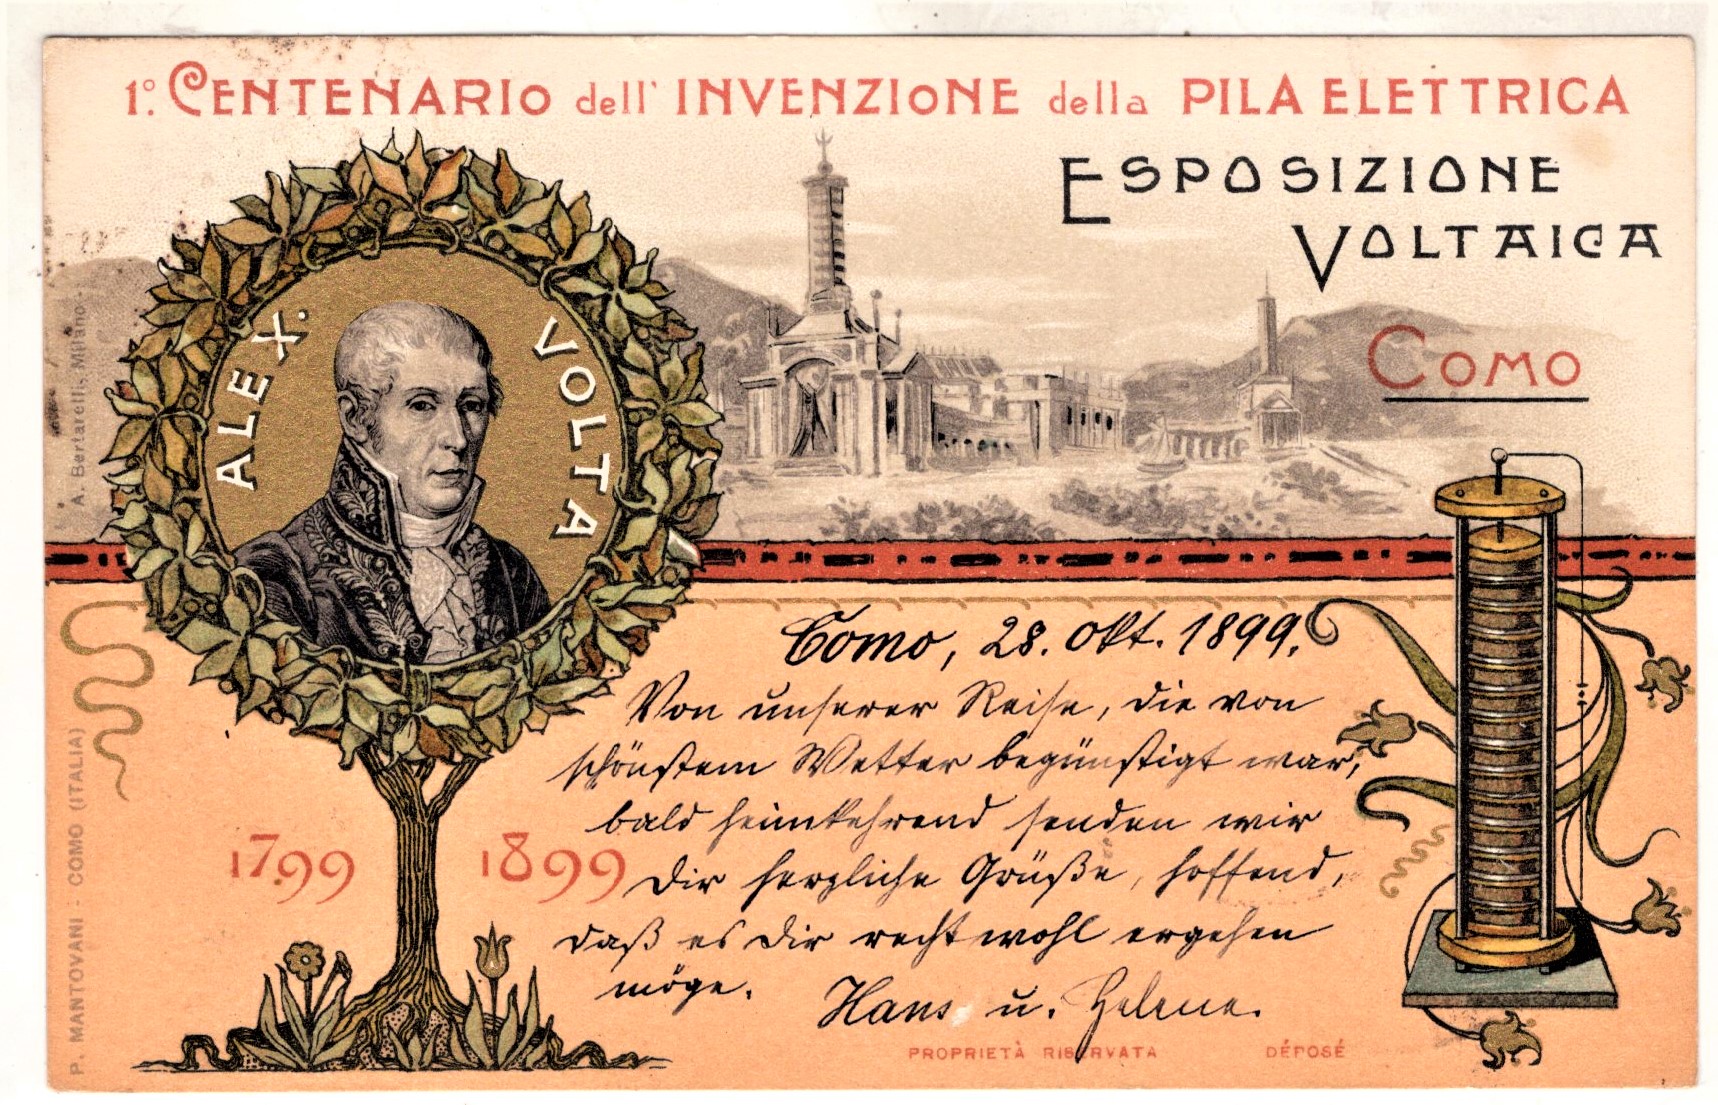 1º. CENTENARIO dell' INVENZIONE della PILA ELETTRICA
ESPOSIZIONE
VOLTAICA
COMO
ALEX. VOLTA
A. Bertarelli, Milano.
P. MANTOVANI - COMO (ITALIA)
1799 1899
Como, 28. Okt. 1899.
Von unserer Reise, die von
schönstem Wetter begünstigt war,
bald heimkehrend senden wir
Dir herzliche Grüße, hoffend,
daß es Dir recht wohl ergehen
möge.
Hans u. Helene.
PROPRIETÀ RISERVATA DÉPOSÉ